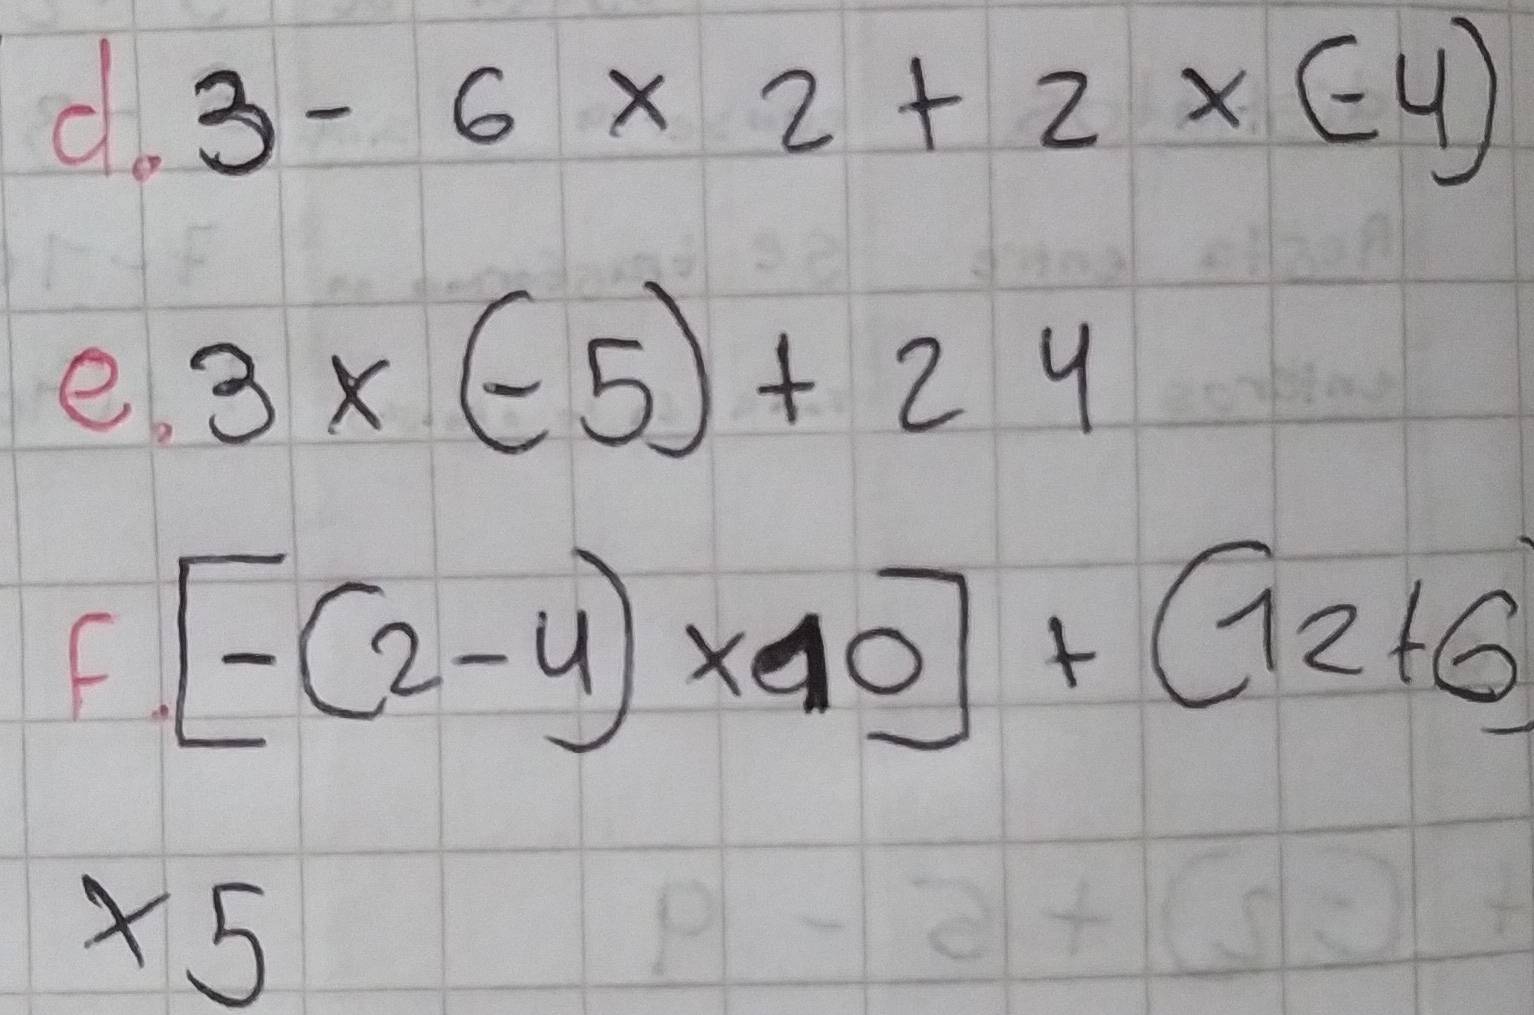 d. 3 - 6 × 2 + 2 × (-4)
e. 3 × (-5) + 24
F. [-(2-4) × 10] + (12+6)
× 5